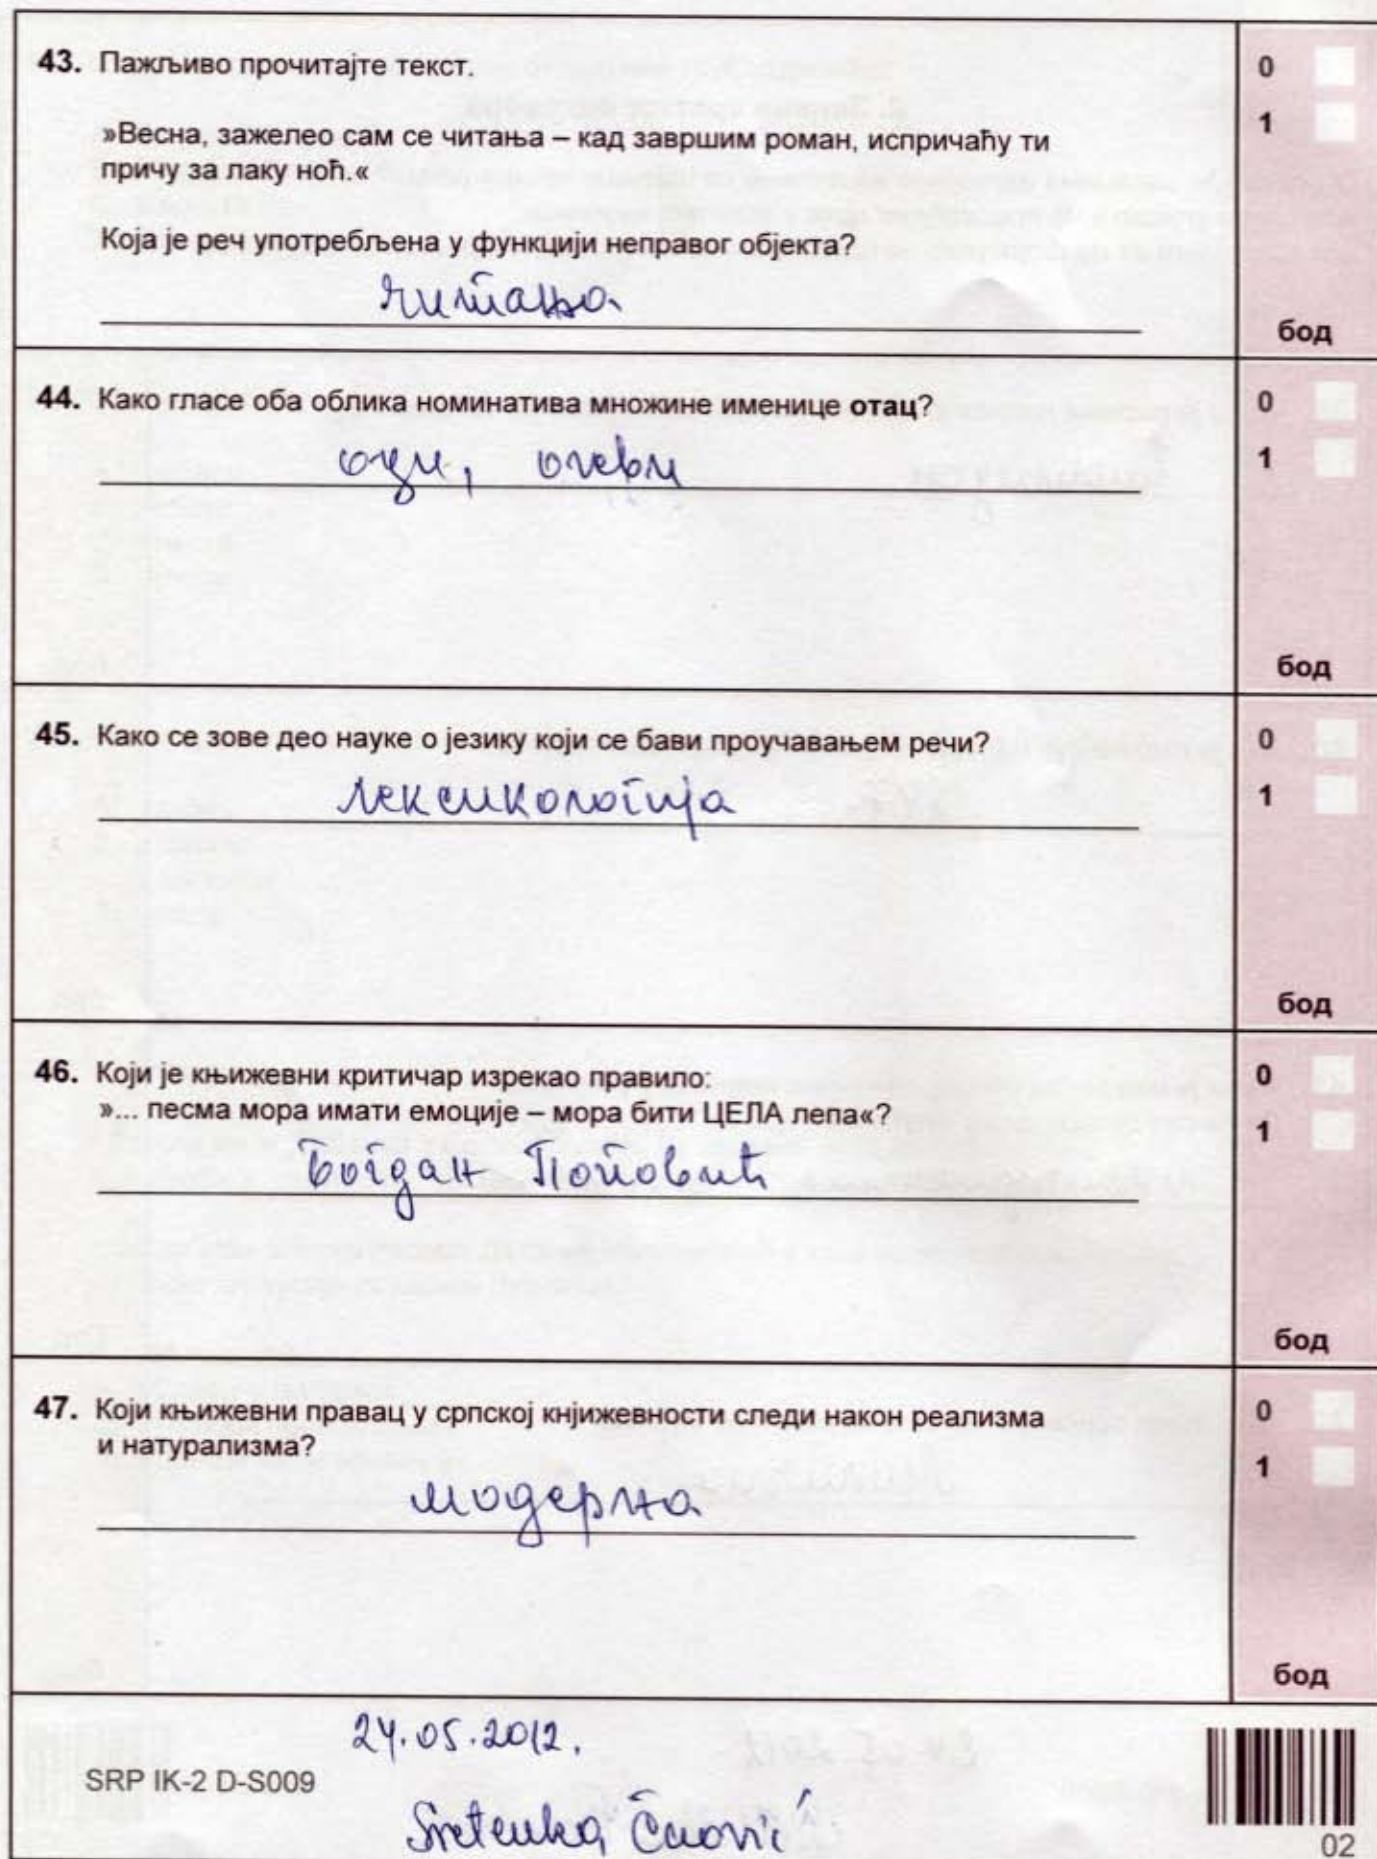 43. Пажљиво прочитајте текст.
»Весна, зажелео сам се читања – кад завршим роман, испричаћу ти
причу за лаку ноћ.«
Која је реч употребљена у функцији неправог објекта?
читања
0
1
бод
44. Како гласе оба облика номинатива множине именице отац?
оци, очеви
0
1
бод
45. Како се зове део науке о језику који се бави проучавањем речи?
лексикологија
0
1
бод
46. Који је књижевни критичар изрекао правило:
»... песма мора имати емоције – мора бити ЦЕЛА лепа«?
Богдан Поповић
0
1
бод
47. Који књижевни правац у српској кнјижевности следи након реализма
и натурализма?
модерна
0
1
бод
24.05.2012.
SRP IK-2 D-S009
Sretenka
02